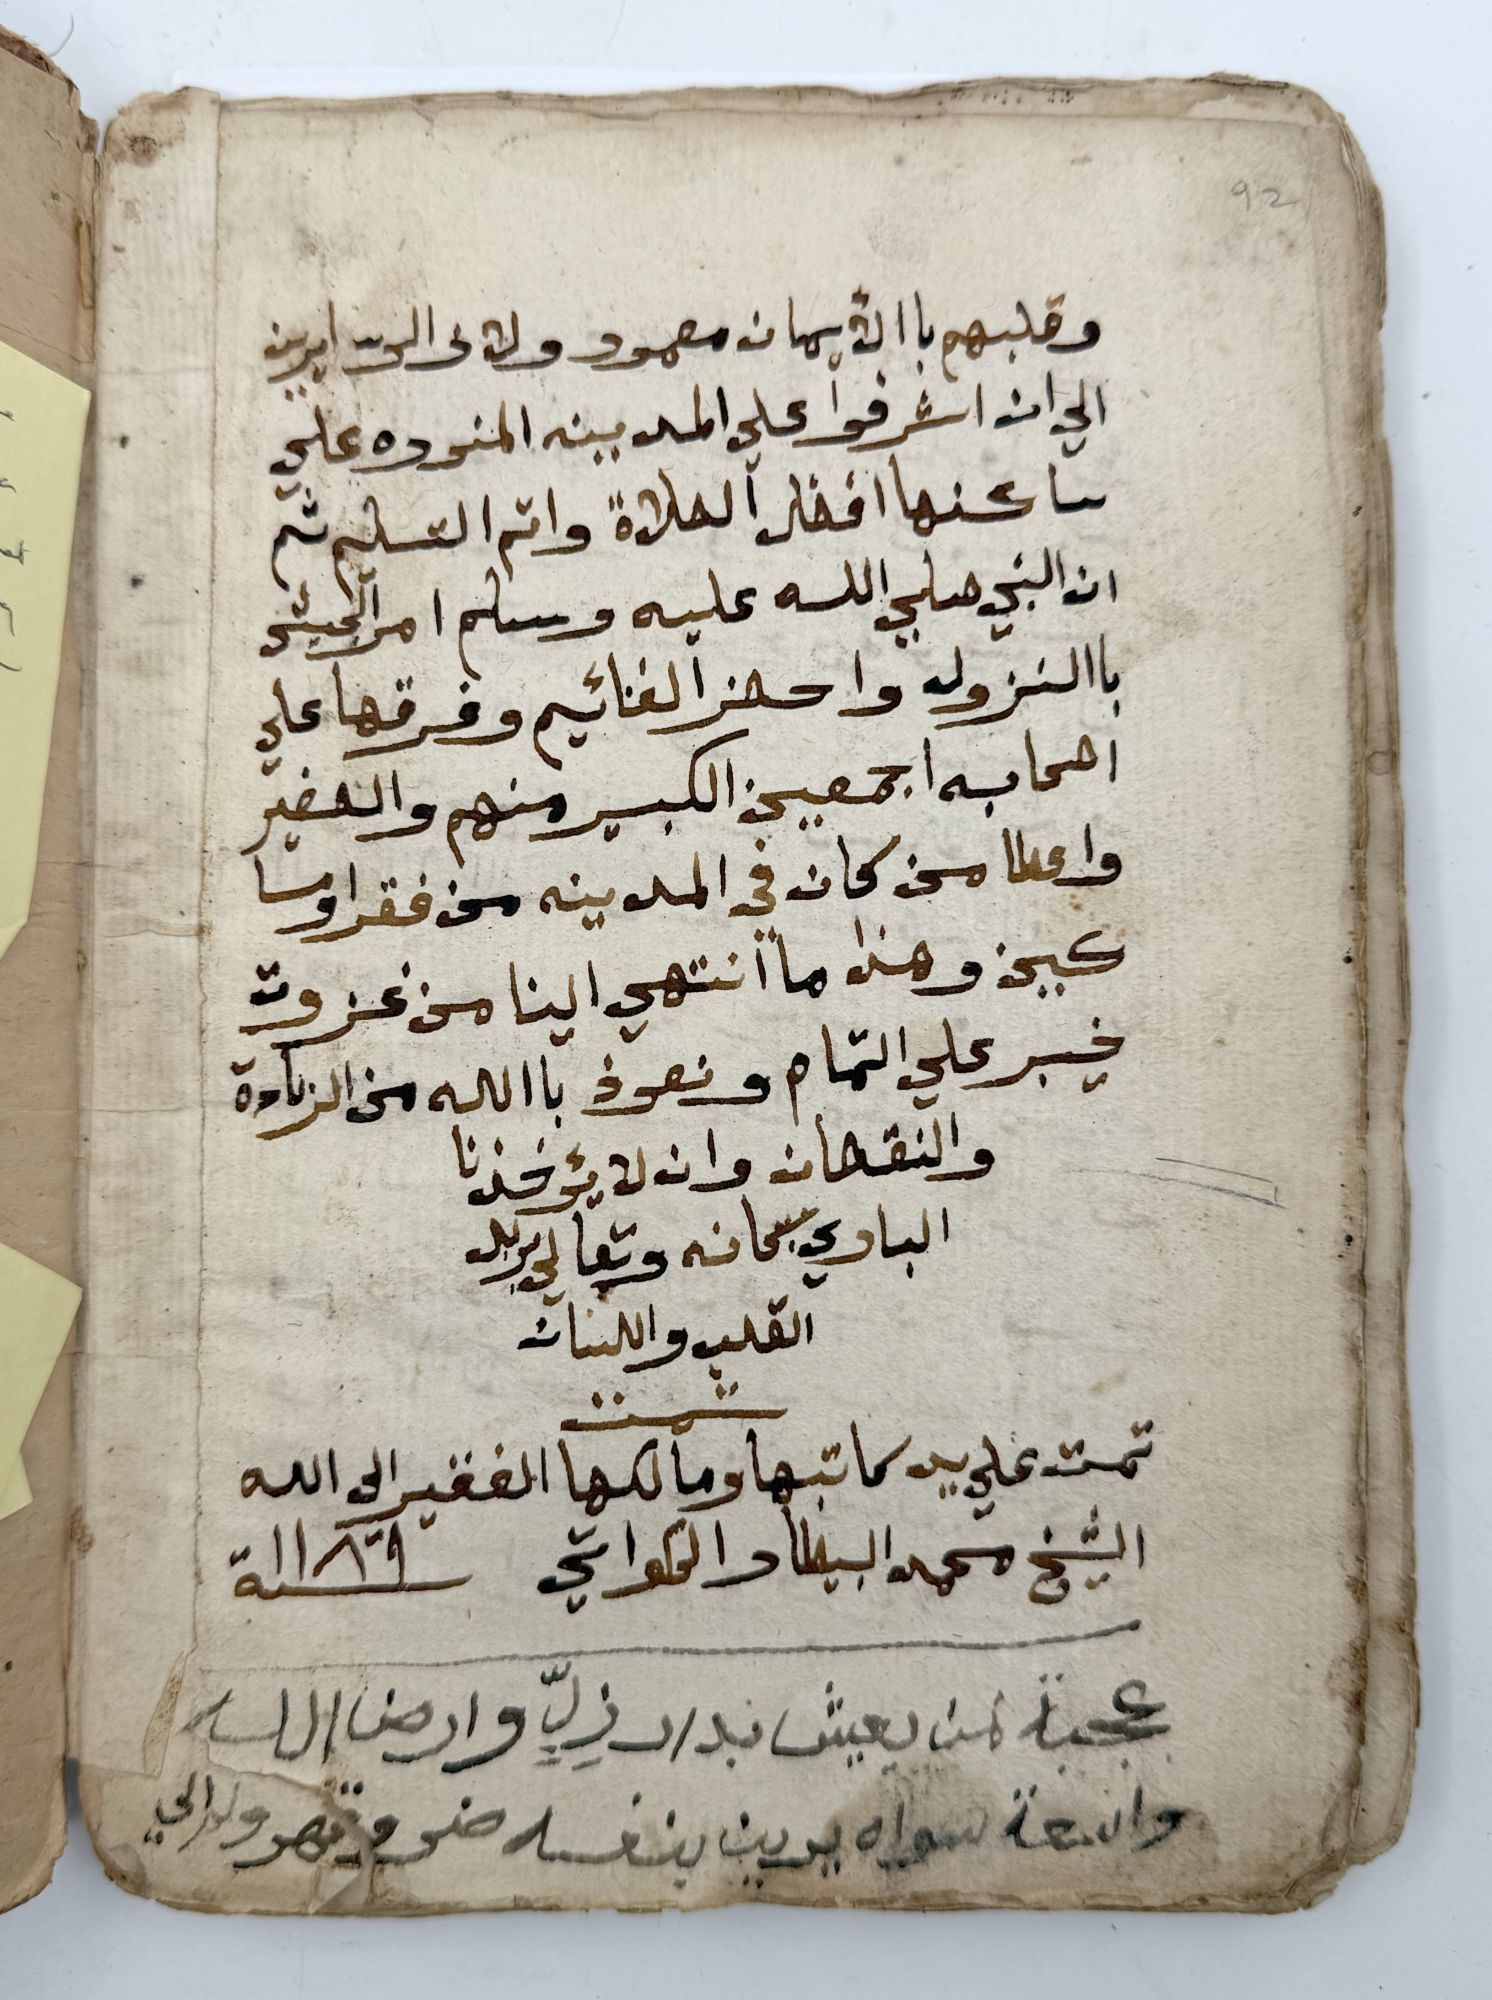 92
وقلبهم باالايمان معمور ولازالوا سايرين
الي ان اشرفوا علي المدينه المنوره علي
ساكنها افضل الصلاة واتم التسليم ثم
ان النبي صلي الله عليه وسلم امر الجيش
باالنزول واحضر الغنائيم وفرقها علي
اصحابه اجمعين الكبير منهم والصغير
واعطا من كان في المدينه من فقرا ومسا
كين وهذا ما انتهي الينا من غزوت
خيبر علي التمام ونعوذ باالله من الزيادة
والنقصان وان لا يؤخذنا
الباري سبحانه وتعالي بزلل
القلب واللسان
تمت
تمت علي يد كاتبها ومالكها الفقير الى الله
الشيخ محمد البيطار الحكواتي سنة
عجبة لمن يعيش بدار ذلٍّ وارض الله
واسعة بنفسه